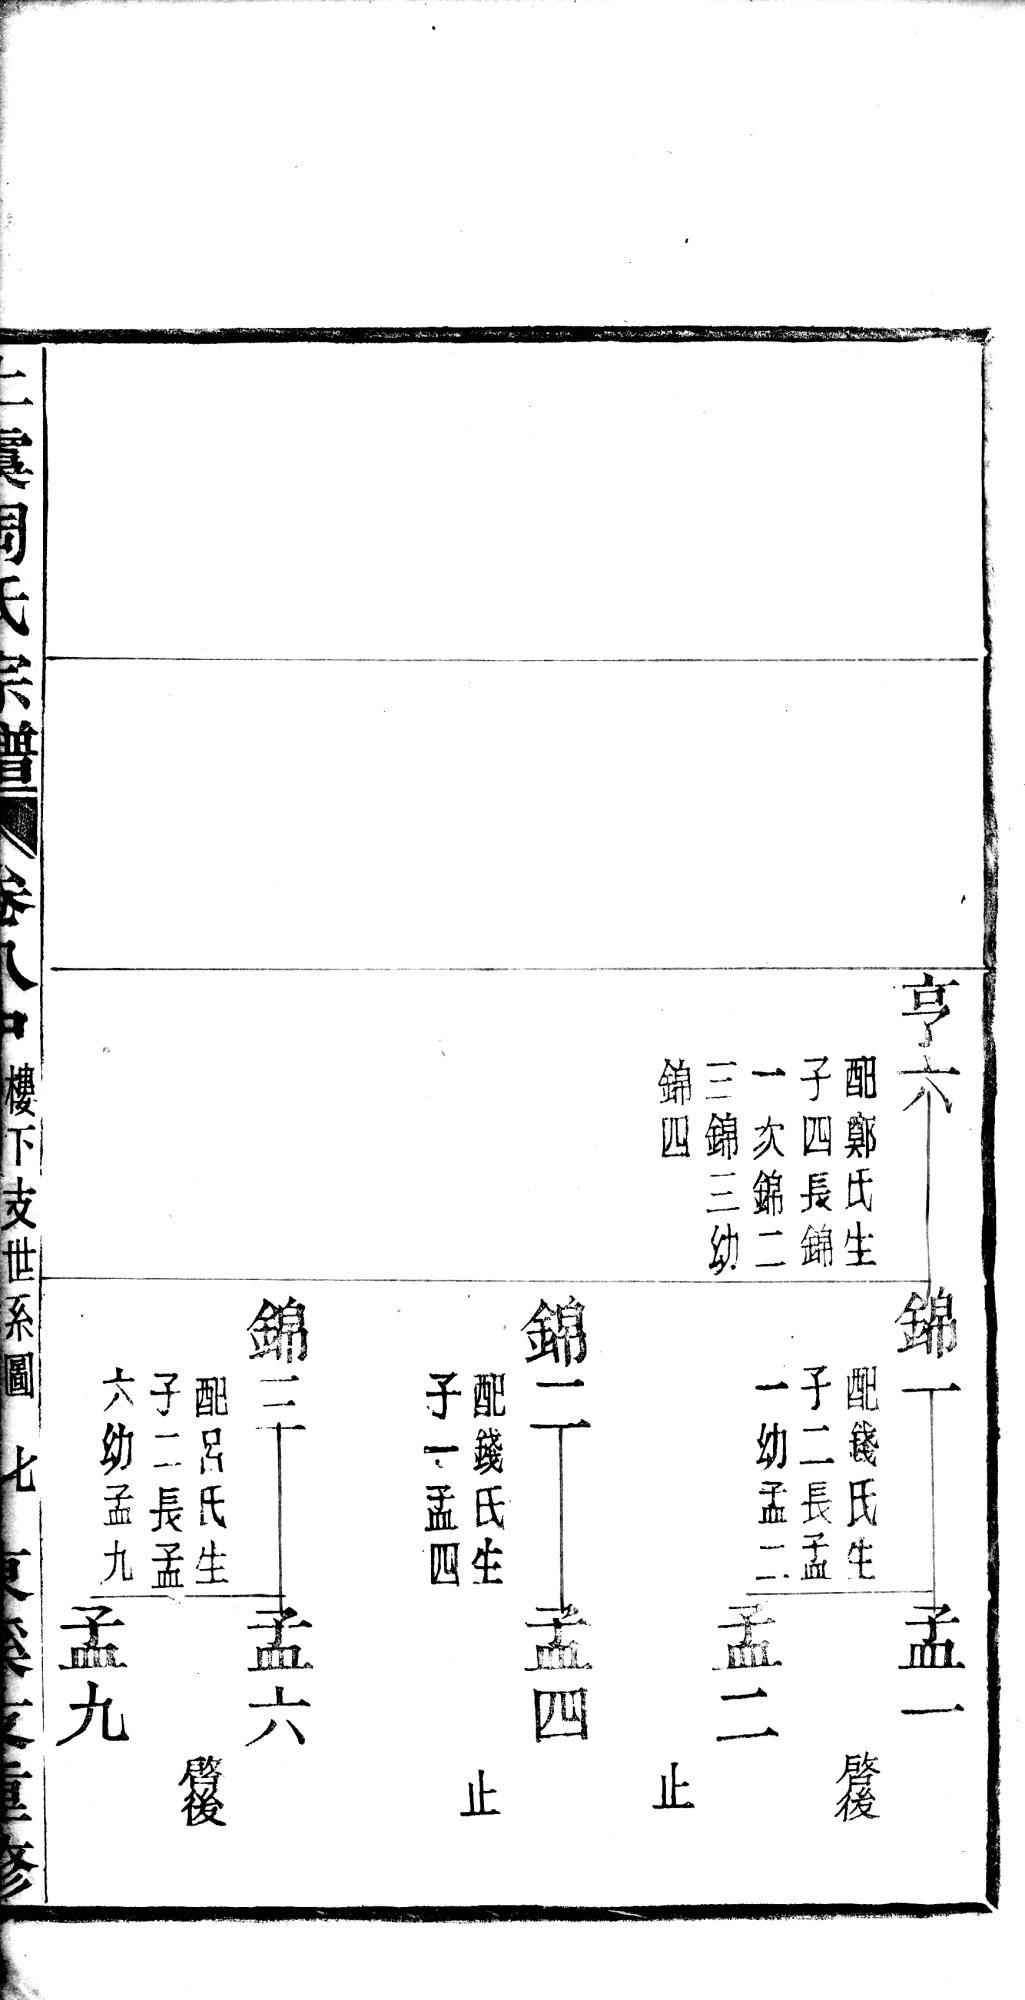 亨六
配鄭氏生
子四長錦
一次錦二
三錦三幼
錦四
錦一
配錢氏生
子二長孟
一幼孟二
錦二
配錢氏生
子一孟四
錦三
配呂氏生
子二長孟
六幼孟九
孟一
啓後
孟二
止
孟四
止
孟六
啓後
孟九
上虞周氏宗譜
卷八
樓下支世系圖
七
重修